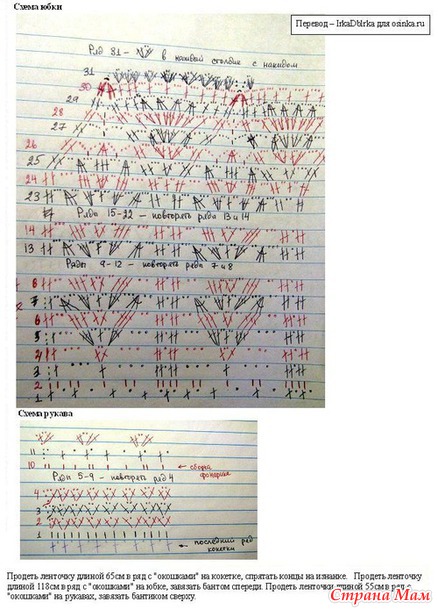 Схема юбки
Перевод – IrkaDbIrka для osinka.ru
Ряд 31 – в каждый столбик с накидом
31
30
29
28
27
26
25
24
23
Ряды 15-22 – повторять ряда 13 и 14
14
13
Ряды 9-12 – повторять ряда 7 и 8
8
7
6
5
4
3
2
1
Схема рукава
11
10
сборка фонарика
Ряды 5-9 – повторять ряд 4
4
3
2
1
последний ряд
кокетки
Продеть ленточку длиной 65см в ряд с "окошками" на кокетке, спрятать концы на изнанке. Продеть ленточку
длиной 118см в ряд с "окошками" на юбке, завязать бантом спереди. Продеть ленточки длиной 55см в ряд с
"окошками" на рукавах, завязать бантиком сверху.
Страна Мам